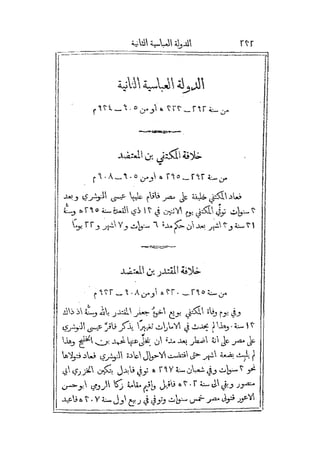 ٢٢٢ الدولة العباسية الثانية
الدولة العباسية الثانية
من سنة ٢٩٢ — ٣٢٣ ه او من ٩٠٥ — ٩٣٤ م
خلافة المكتفي بن المعتضد
من سنة ٢٩٢ — ٢٩٥ ه او من ٩٠٥ — ٩٠٨ م
فعاد المكتفي خليفة على مصر فاقام عليها عيسى النوشري وبعد
٣ سنوات توفي المكتفي يوم الاثنين في ١٢ ذي القعدة سنة ٢٩٥ ه وسنه
٣١ سنة و ٣ اشهر بعد ان حكم مدة ٦ سنوات و ٧ اشهر و ٢٢ يوماً
خلافة المقتدر بن المعتضد
من سنة ٢٩٥ — ٣٢٠ ه او من ٩٠٨ — ٩٣٢ م
وفي يوم وفاة المكتفي بويع اخوه جعفر المقتدر بالله وسنه اذ ذاك
١٣ سنة. وهذا لم يحدث في الامارات تغييراً يذكر فاقر عيسى النوشري
على مصر على انه اضطر بعد مدة ان يتخلى عنها لمحمد بن الخليج وهذا
لم يلبث بضعة اشهر حتى اقتضت الاحوال اعادة النوشري فعاد فتولاها
نحو ٣ سنوات وفي شعبان سنة ٢٩٧ ه توفي فابدل بتكين الخزري ابي
منصور وبقي الى سنة ٣٠٢ ه فاقيل واقيم مقامه زكا الرومي ابو حسن
الاعور فتولى مصر خمس سنوات وتوفي في ربيع اول سنة ٣٠٧ ه فاعيد